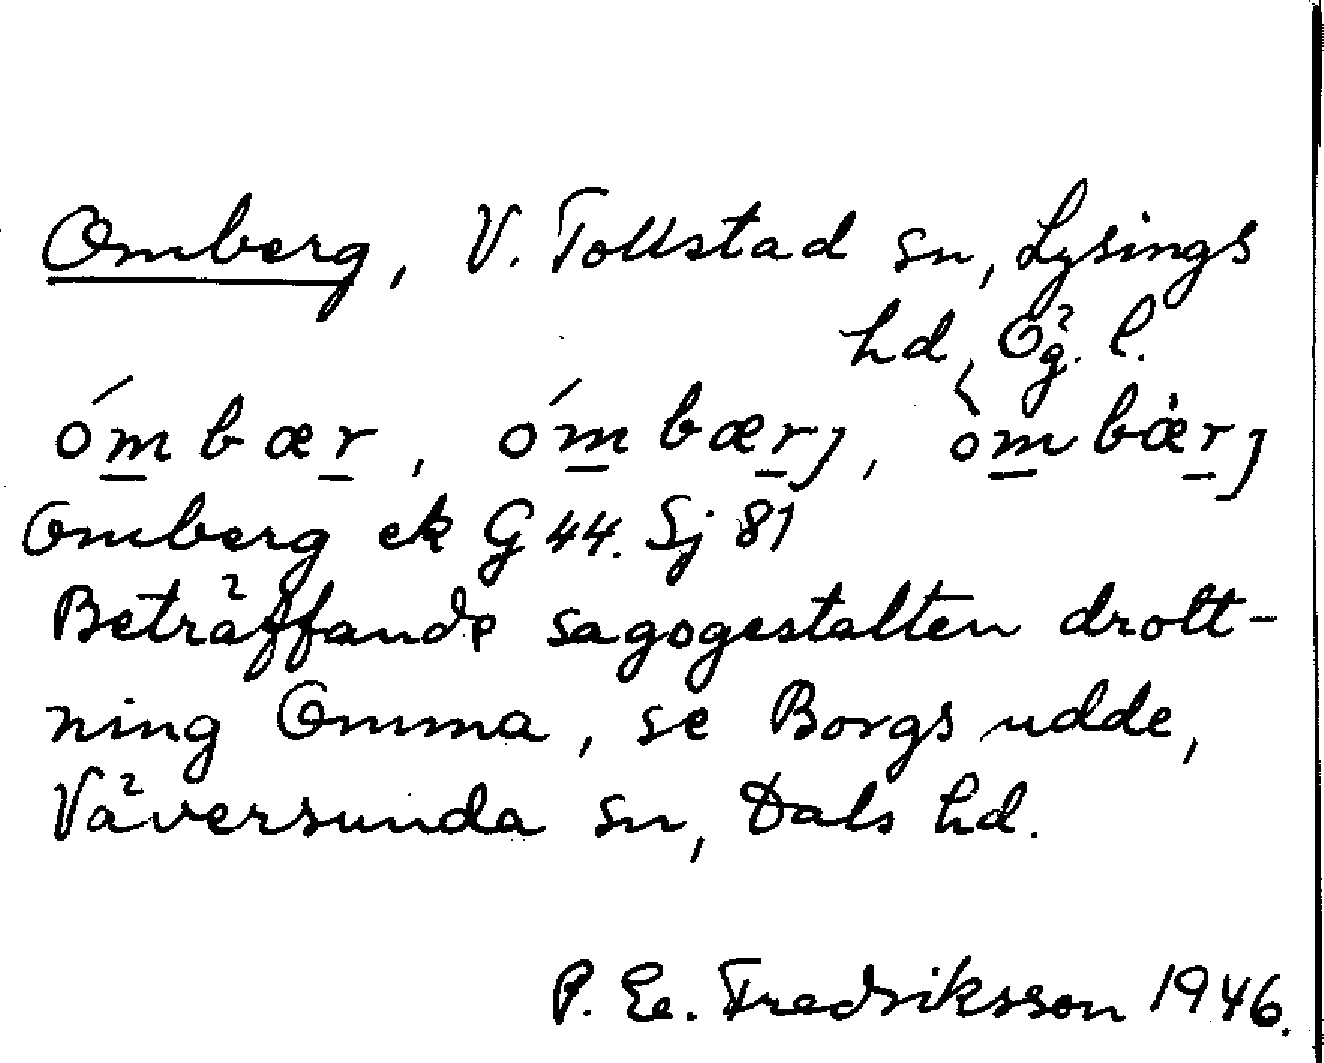 Omberg, V. Tollstad sn, Lysings
hd, Ög. l.
ómbær, ómbærj, òmbæ̀rj
Omberg ek G 44. Sj 81
Beträffande sagogestalten drott-
ning Omma, se Borgs udde,
Väversunda sn, Dals hd.
P. E. Fredriksson 1946.